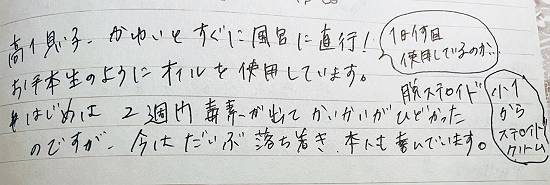 高1息子、かゆいとすぐに風呂に直行！
1日何回
使用しているのか…
お手本生のようにオイルを使用しています。
脱ステロイド
はじめは2週間毒素が出てかいかいがひどかった
のですが、今はだいぶ落ち着き、本人も喜んでいます。
小1
から
ステロイド
クリーム